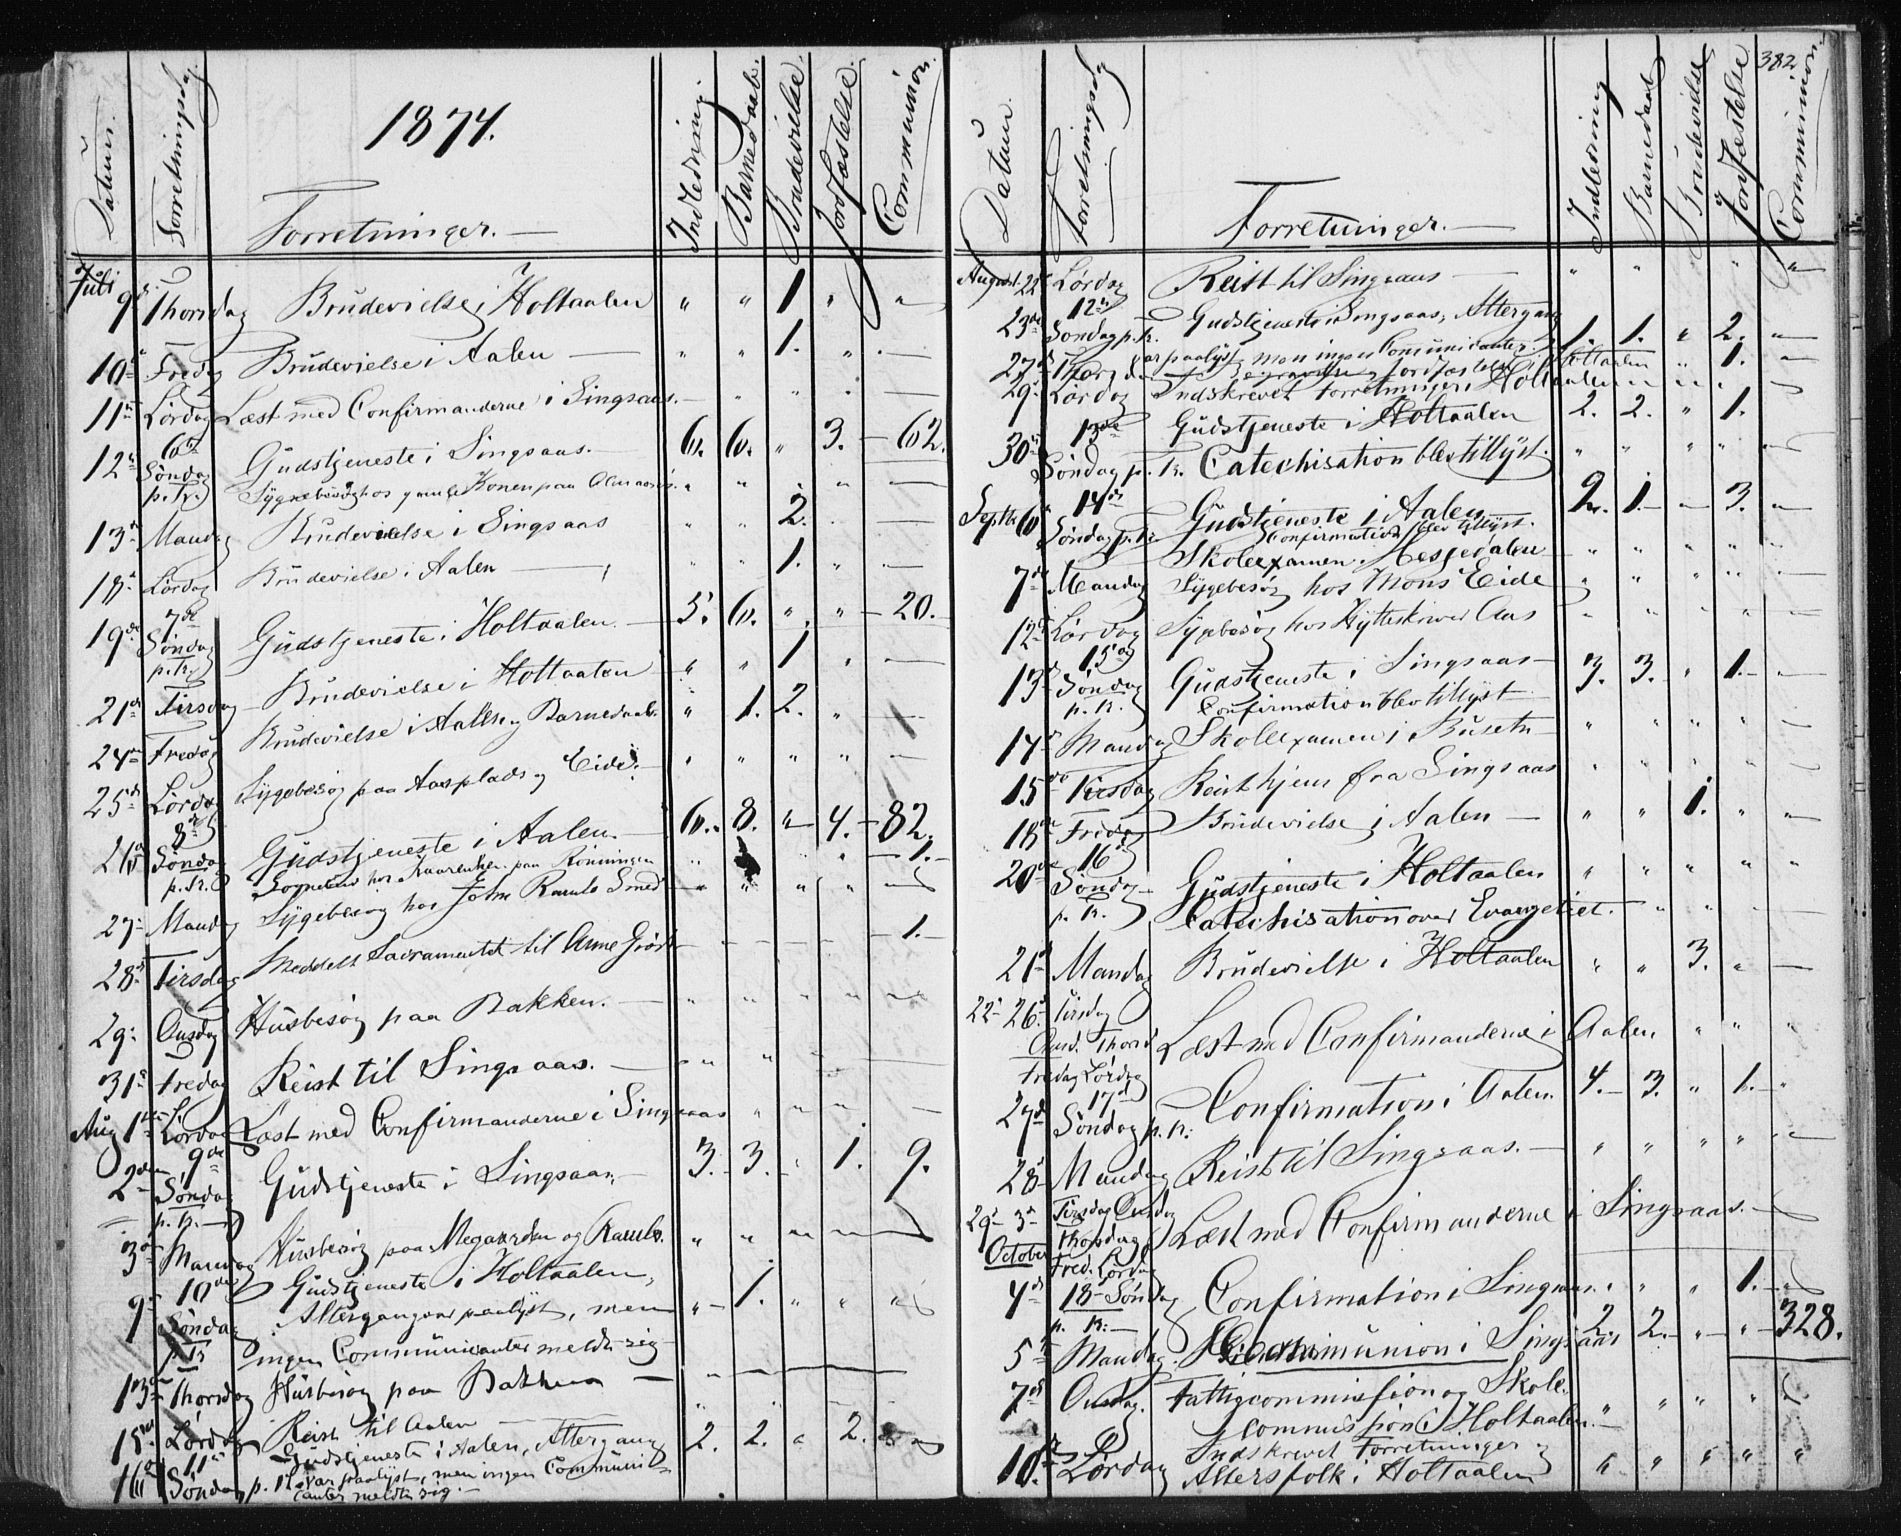 1874.
Datum. Forretningsdag Forretninger. — Indledning. Barnedaab. Brudevielse. Jordfæstelse. Communion.
Juli 9de Thorsdag Brudevielse i Holtaalen " " 1 " "
10de Fredag Brudevielse i Aalen — " " 1. " —
11te Lørdag Læst med Confirmanderne i Singsaas. — " " " —
12te 6te Søndag p. Tr. Gudstjeneste i Singsaas. — 6. 6. " 3. — 62.
Sygebesøg hos gamle Konen paa " " " " —
13de Mandag Brudevielse i Singsaas " " 2. " —
18de Lørdag Brudevielse i Aalen — " " 1. " —
19de 7de Søndag p. Tr. Gudstjeneste i Holtaalen. — 5. 6. " " — 20.
21de Tirsdag Brudevielse i Holtaalen — " " 1 " —
24de Fredag Brudevielse i Aalen og Barnedaab. " 1. 2. " —
25de Lørdag Sygebesøg paa Aasplads og Eide. — " " " " —
26de 8de Søndag p. Tr. Gudstjeneste i Aalen. — 6. 8. " 4. — 82.
Sognebud hos paa Rønningen " " " — 1. —
27de Mandag Sygebesøg hos John Ramlo Smed " " " " —
28de Tirsdag Meddelt Sacramentet til Anne — — — — — 1. —
29de Onsdag Husbesøg paa Bakken. — " " " " "
31te Fredag Reist til Singsaas. — " " — — —
Aug 1ste Lørdag Læst med Confirmanderne i Singsaas " " " —
2den 9de Søndag p. Tr. Gudstjeneste i Singsaas. 3. — 3. — " 1. 9.
3die Mandag Husbesøg paa Megaarden og Ramlo. " " " " —
9de 10de Søndag p. Tr. Gudstjeneste i Holtaalen,
Altergang var paalyst, men " — 1. " " "
ingen Communicanter meldte sig
13de Thorsdag Husbesøg paa Bakken — " — — — —
15de Lørdag Reist til Aalen — " " " " —
16de 11te Søndag p. Tr. Gudstjeneste i Aalen, Altergang 2. 2. " 2. "
var paalyst, men ingen Communi-
canter meldte sig. —
382
Datum. Forretningsdag Forretninger. — Indledning Barnedaab Brudevielse Jordfæstelse Communion.
August 22de Lørdag Reist til Singsaas — " " " " "
23de 12te Søndag p. Tr. Gudstjeneste i Singsaas, Altergang
var paalyst, men ingen Comunicanter. 1. 1. " 2. —
27de Thorsdag Jordfæstelse i Holtaalen " 1. "
29de Lørdag Indskrevet Forretninger i Holtaalen " " " —
30te 13de Søndag p. Tr. Gudstjeneste i Holtaalen 2. 2. " 1. —
Catechisation blev tillyst. " " " " "
Septbr 6te 14de Søndag p. Tr. Gudstjeneste i Aalen 2. 1. — 3. —
Confirmation blev tillyst.
7de Mandag Skoleexamen i Hesjedalen " " " " "
Sygebesøg hos Mons Eide " " " " —
12te Lørdag Sygebesøg hos Hytteskriver Aas " " " " —
13de 15de Søndag p. Tr. Gudstjeneste i Singsaas — 3. 3. " 1. —
Confirmation blev tillyst
14de Mandag Skoleexamen i Busetn — " " " " —
15de Tirsdag Reist hjem fra Singsaas " " " " —
18de Fredag Brudevielse i Aalen — " " 1. " —
20de 16de Søndag p. Tr. Gudstjeneste i Holtaalen " " " " "
Catechisation over Evangeliet. — " " — —
21de Mandag Brudevielse i Holtaalen " " 3. " —
22de-26de Tirsdag Onsd. Thorsd. Fredag Lørdag Læst med Confirmanderne i Aalen " " "
27de 17de Søndag p. Tr. Confirmation i Aalen. 4. — 3. " 1. — "
28de Mandag Reist til Singsaas. — " " " " —
29de-3die October Tirsdag Onsdag Thorsdag Fred. Lørdag Læst med Confirmanderne i Singsaas. —
4de 18de Søndag p. Tr. Confirmation i Singsaas. " " " 1. —
5te Mandag. Communion i Singsaas 2. 2. — " — " — 328.
7de Onsdag. Fattigcommission og Skole-
commission i Holtaalen. — " " " "
10de Lørdag Indskrevet Forretninger og
Altersfolk i Holtaalen " " " " "